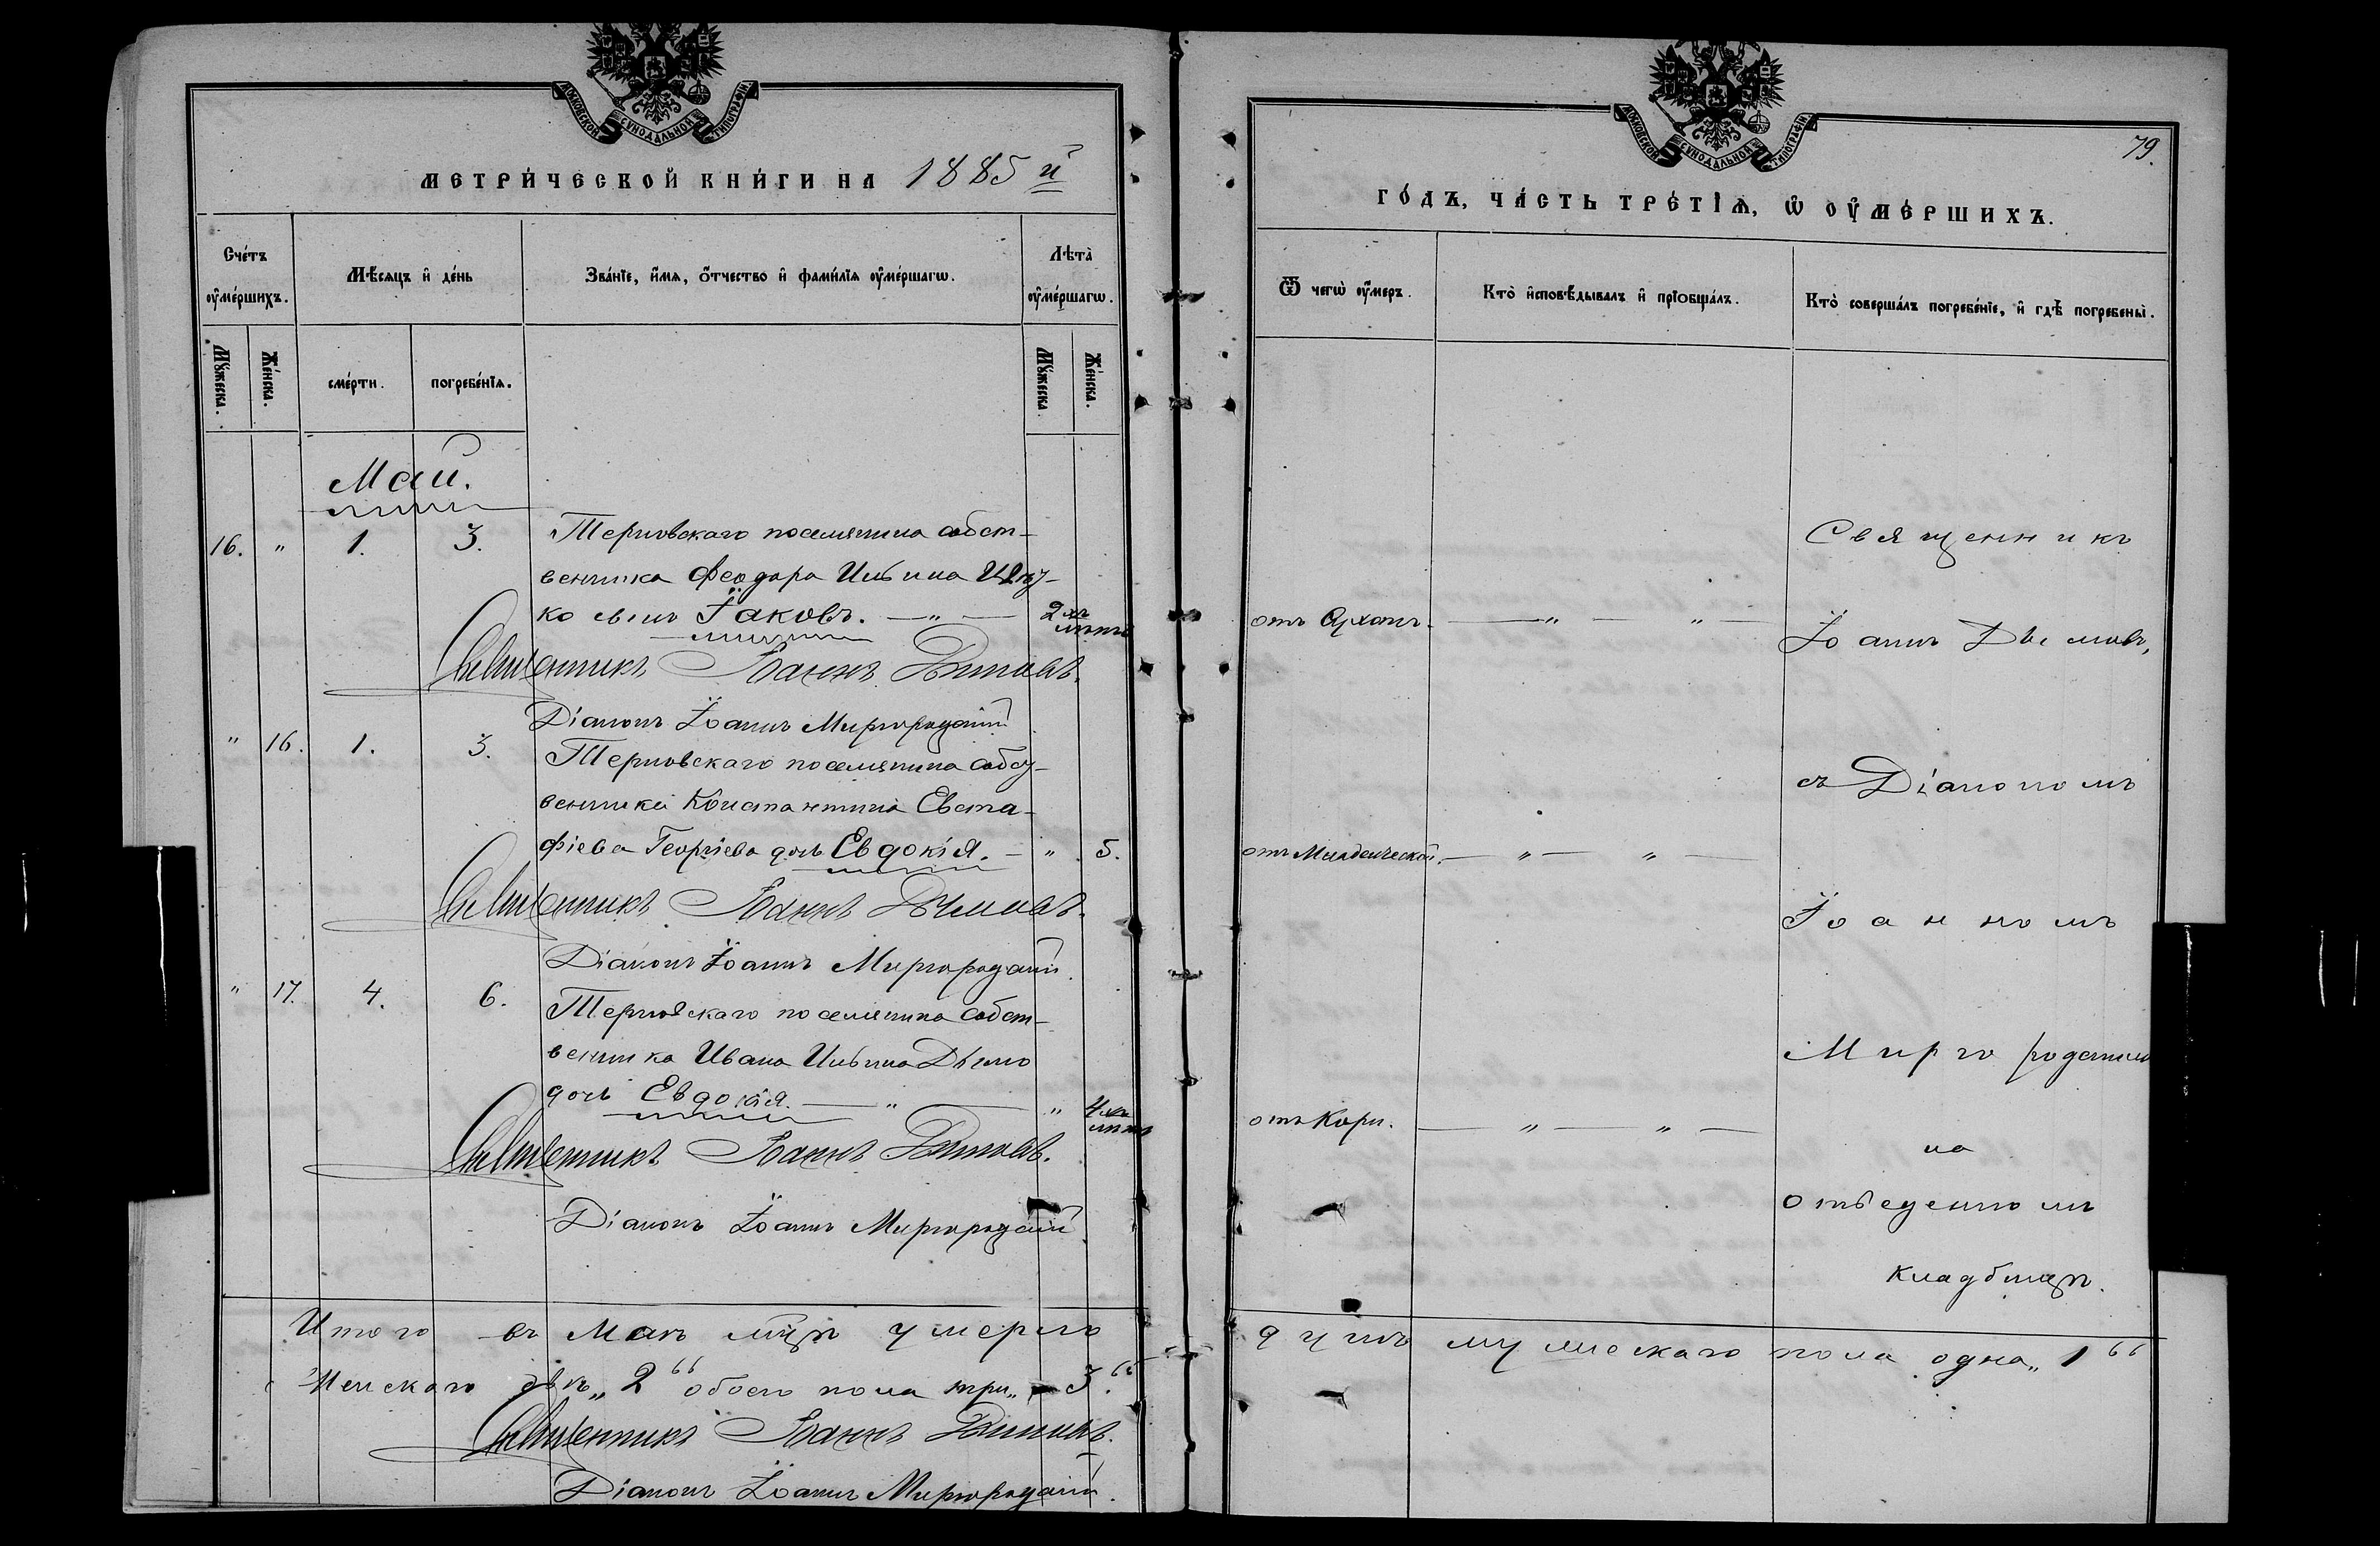 МОСКОВСКОЙ СѴНОДАЛЬНОЙ ТИПОГРАФІИ
МЕТРИ́ЧЕСКОЙ КНИ́ГИ НА 1885й
Сче́тъ оу҆ме́ршихъ.
Мѣ́сяцъ и҆ де́нь
Зва́нїе, и҆́мя, о҆́тчество и҆ фами́лїя оу҆ме́ршагѡ.
Лѣта̀ оу҆ме́ршагѡ.
Мꙋ́жеска.
Же́нска.
сме́рти.
погребе́нїя.
Мꙋ́жеска.
Же́нска.
Май.
16. " 1. 3. Терновскаго поселянина собст-
венника Феодора Ильина
ко сынъ Іаковъ. — " — 2хъ
лѣтъ
Священникъ Іоаннъ Дѣмовъ.
Діаконъ Іоаннъ Миргородскій
" 16. 1. 3. Терновскаго поселянина собст-
венника Константина Евста-
фіева Георгіева дочь Евдокія. — " 5.
Священникъ Іоаннъ Дѣмовъ.
Діаконъ Іоаннъ Миргородскій.
" 17. 4. 6. Терновскаго поселянина собст-
венника Ивана Ильина Дѣмо
дочь Евдокія. — " — " 4хъ
лѣтъ
Священникъ Іоаннъ Дѣмовъ.
Діаконъ Іоаннъ Миргородскій
Итого въ Маѣ мцѣ умерло
Женскаго двѣ „2“ обоего пола три „3.“
Священникъ Іоаннъ Дѣмовъ.
Діаконъ Іоаннъ Миргородскій.
79.
МОСКОВСКОЙ СѴНОДАЛЬНОЙ ТИПОГРАФІИ
ГО́ДЪ, ЧА́СТЬ ТРЕ́ТІѦ, Ѡ҆ ОУ҆МЕ́РШИХЪ.
Ѿ чегѡ̀ оу҆́меръ.
Кто̀ и҆сповѣ́дывалъ и҆ прїобща́лъ.
Кто̀ соверша́лъ погребе́нїе, и҆ гдѣ̀ погребены̀.
Священникъ
отъ — " — " —
Іоаннъ Дѣмовъ,
съ Діакономъ
отъ Младенческой. — " — " —
Іоанномъ
Миргородскимъ
отъ Кори. — " — " —
на
отведенномъ
кладбищѣ.
душъ мужескаго пола одна „1“